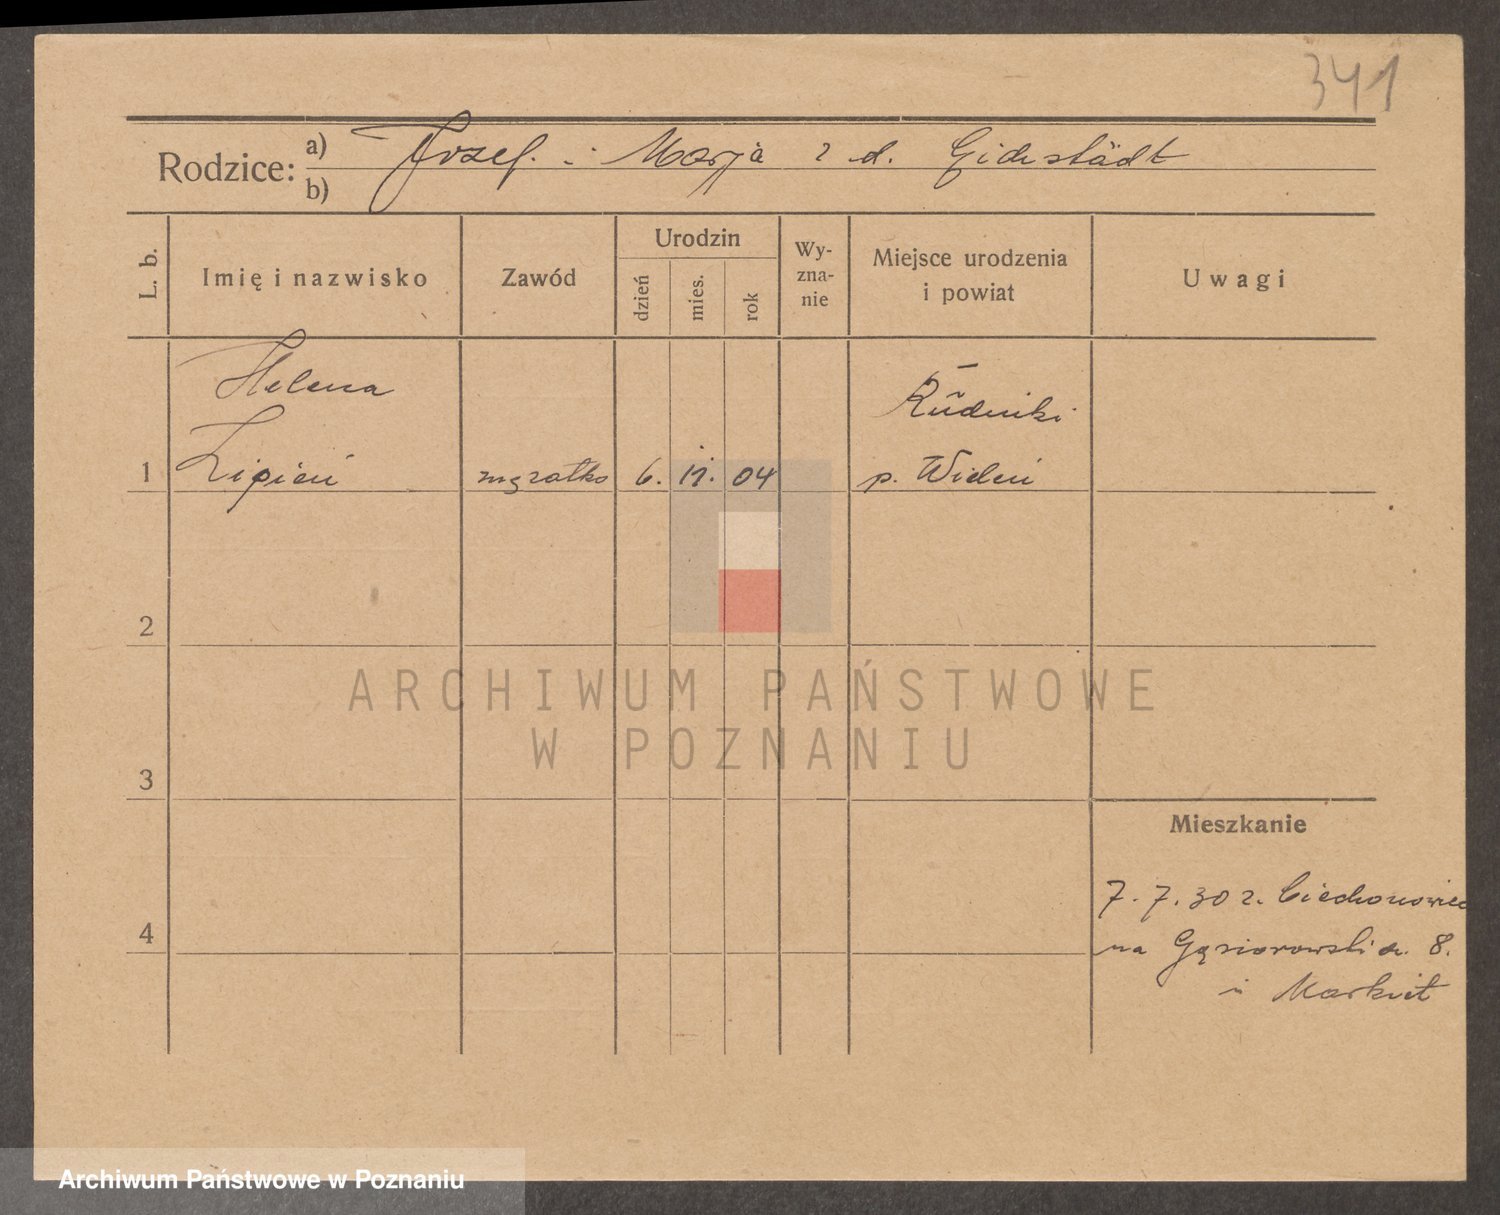 341
Rodzice:
a) Jozef. i Marja z d. Gichstädt
b)
L. b.
Imię i nazwisko
Zawód
Urodzin
dzień
mies.
rok
Wy-
zna-
nie
Miejsce urodzenia
i powiat
Uwagi
Helena
Rudniki
1 Lipień mężatka 6. 11. 04 p. Wieluń
2
ARCHIWUM PAŃSTWOWE
W POZNANIU
3
Mieszkanie
7. 7. 30 r. Ciechonowiec
4
na Gąsiorowskich. 8.
u Markwit
Archiwum Państwowe w Poznaniu